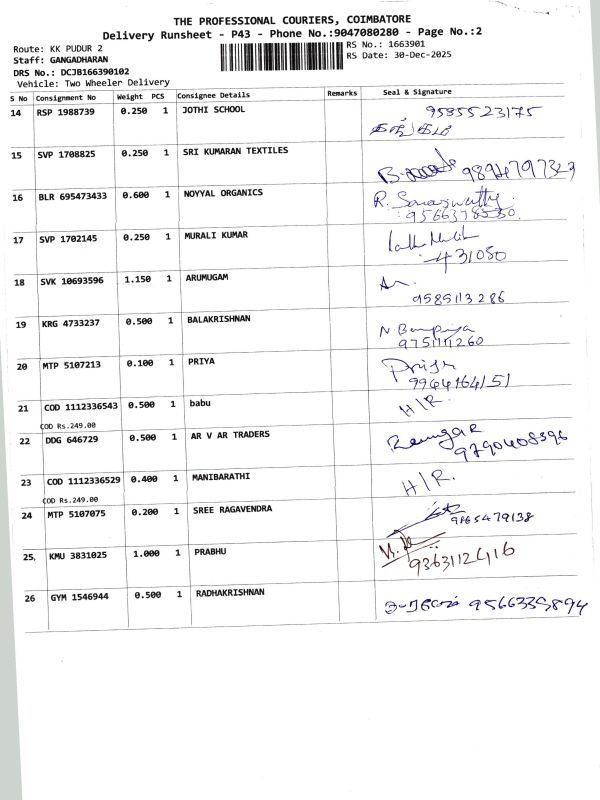 THE PROFESSIONAL COURIERS, COIMBATORE
Delivery Runsheet - P43 - Phone No.:9047080280 - Page No.:2
Route: KK PUDUR 2
RS No.: 1663901
Staff: GANGADHARAN
RS Date: 30-Dec-2025
DRS No.: DCJB166390102
Vehicle: Two Wheeler Delivery
S No Consignment No Weight PCS Consignee Details Remarks Seal & Signature
14 RSP 1988739 0.250 1 JOTHI SCHOOL
15 SVP 1708825 0.250 1 SRI KUMARAN TEXTILES
16 BLR 695473433 0.600 1 NOYYAL ORGANICS R.
17 SVP 1702145 0.250 1 MURALI KUMAR
431050
18 SVK 10693596 1.150 1 ARUMUGAM
9585113286
19 KRG 4733237 0.500 1 BALAKRISHNAN N.
9751111260
20 MTP 5107213 0.100 1 PRIYA Priya
9964164151
21 COD 1112336543 0.500 1 babu H/R.
COD Rs.249.00
22 DDG 646729 0.500 1 AR V AR TRADERS
9790408396
23 COD 1112336529 0.400 1 MANIBARATHI H/R.
COD Rs.249.00
24 MTP 5107075 0.200 1 SREE RAGAVENDRA
9865479138
25, KMU 3831025 1.000 1 PRABHU
9363112416
26 GYM 1546944 0.500 1 RADHAKRISHNAN 9566335894